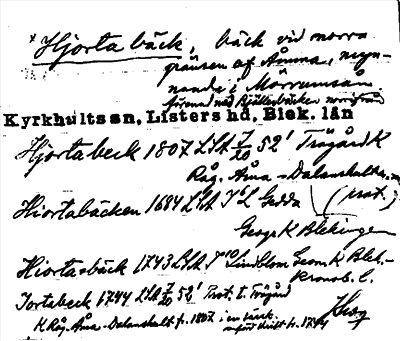 × Hjortabäck, bäck vid norra
gränsen af Åmma, myn-
nande i Mörrumsån
förenad med norrifrån
Kyrkhults sn, Listers hd, Blek. län
Hjortabeck 1807 LSA 7/20 52¹ Trägård K
Råg. Åma - Dalanshult
Hiortabäcken 1684 LSA Gedda (prot.)
Geogr. K Blekingen
Hiortasbäck 1743 LSA Lindblom Geom. K Blek.-
Kronob. l.
Jortabeck 1744 LSA 7/20 52¹ Prot. t. Trägård
K Råg. Åma - Dalanshult fr. 1807 i en
avskrift fr. 1744